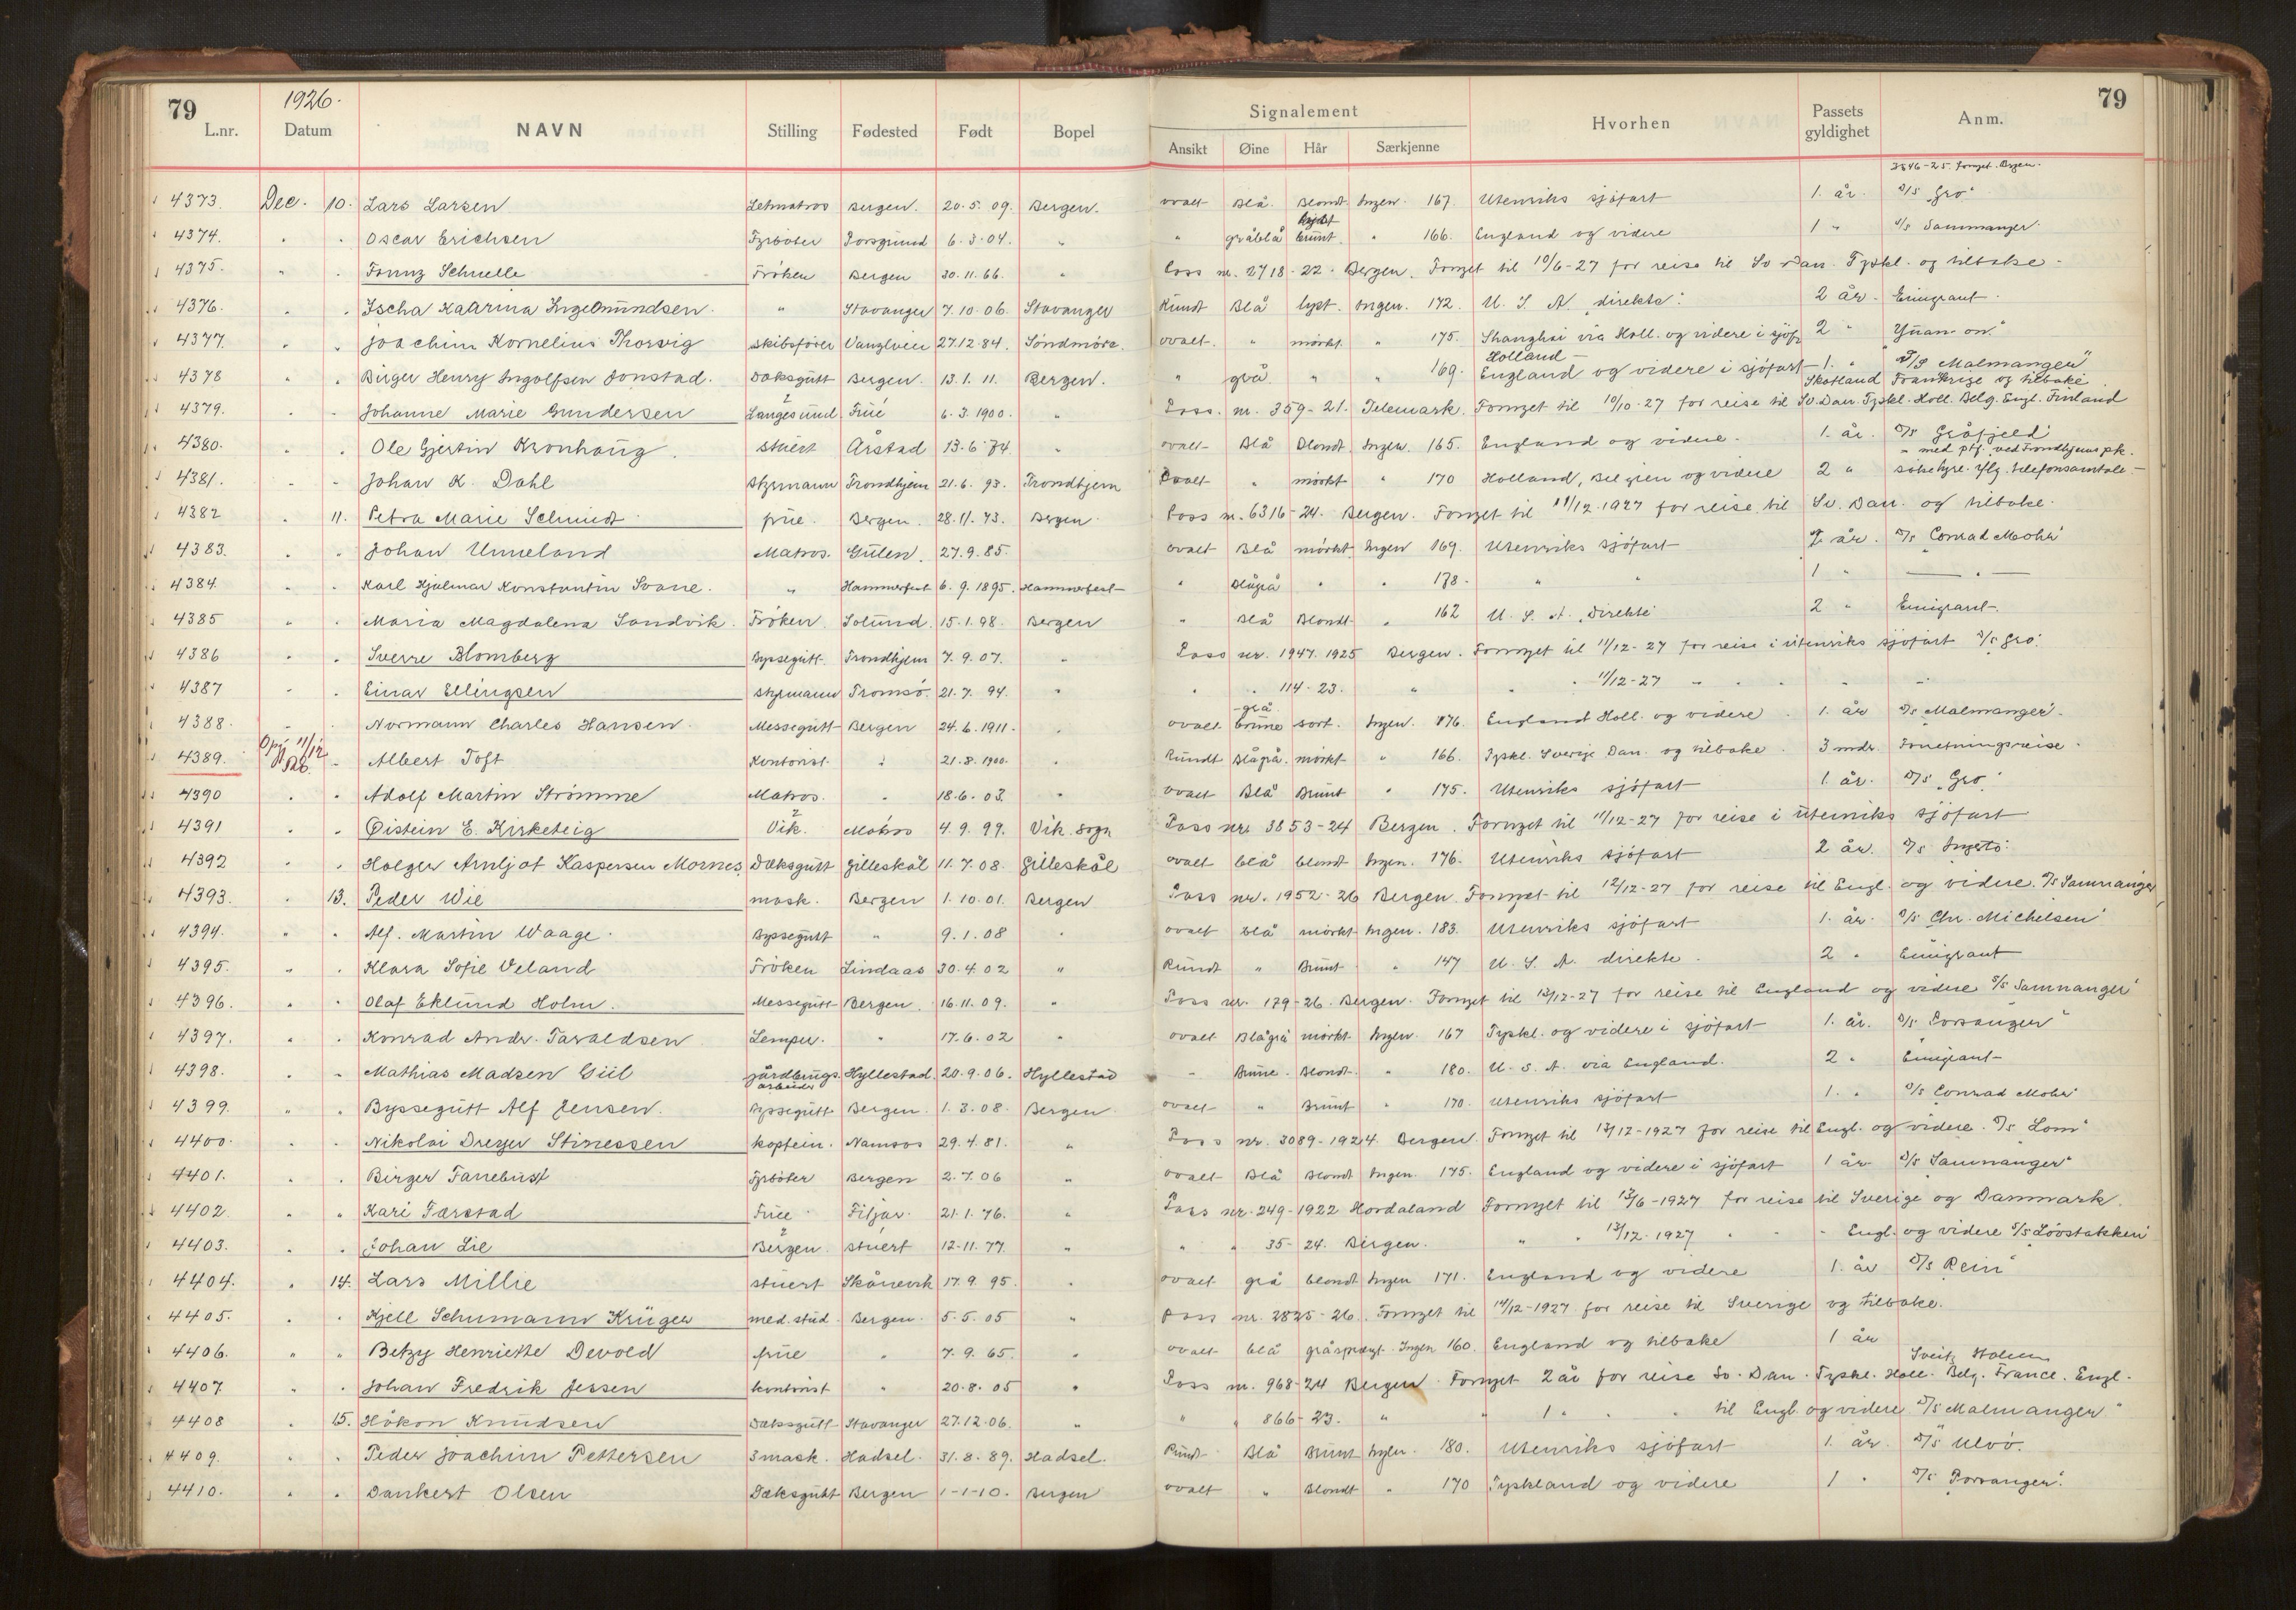 79 1926. 79
Signalement
L.nr. Datum NAVN Stilling Fødested Født Bopel Ansikt Øine Hår Særkjenne Hvorhen Passets gyldighet Anm.
4373. Dec. 10. Lars Larsen Letmatros Bergen. 20.5.09. Bergen. ovalt Blå. Blondt. Ingen. 167 Utenriks sjöfart 1. år. D/S „Gro"
4374. " . Oscar Erichsen Fyrböter Porsgrund 6.3.04. " " gråblå brunt. " 166. England og videre 1 " D/S Samnanger
4375. " . Schnelle Fröken Bergen 30.11.66. " Pass nr. 2718-22. Bergen. Fornyet til 10/6-27 for reise til Sv Dan. Tyskl. og tilbake.
4376. " . Ingebrundsen. " Stavanger 7.10.06. Stavanger Rundt Blå lyst. Ingen. 172. U.S.A. „direkte". 2 år. Emigrant.
4377. " . Joachim Kornelius Thorsvig skibsförer 27.12.84. Söndmöre. ovalt. " mörkt. " 175. Shanghai via Holl. og videre i sjöf. 2 "
4378 " . Birger Henry Ingolfsen Jonstad. Dæksgutt Bergen. 13.1.11. Bergen. " grå " " 169. Holland - England og videre i sjöfart 1. " D/S Malmanger"
Skotland Frankrige og tilbake
4379. " . Johanne Marie Gundersen Langesund Frue 6.3.1900. " Pass. nr. 359-21. Telemark. Fornyet til 10/10-27 for reise til Sv. Dan. Tyskl. Holl. Belg. Engl. Finland
4380. . . Ole Gjertin Kronhaug. stuert Årstad 13.6.74. " ovalt Blå Blondt. Ingen. 165. England og videre. 1. år. D/S Gråfjeld"
4381. " . Johan K. Dahl styrmann Trondhjem 21.6.93. Trondhjem Ovalt " mörkt " 170 Holland, Belgien og videre 2 "
4382 . 11. Petra Marie Schmidt frue. Bergen. 28.11.73. Bergen. Pass nr. 6316-24. Bergen. Fornyet til 11/12.1927 for reise til Sv. Dan. og tilbake.
4383. . . Johan Unneland Matros. Gulen. 27.9.85. ovalt Blå mörkt Ingen 169. Utenriks sjöfart 2 år. D/S „Conrad Mohr"
4384. " . Karl Hjalmar Konstantin Svane. " Hammerfest 6.9.1895. Hammerfest " Blågrå " " 178. " " 1 "
4385 " . Maria Magdalena Sandvik. Fröken. Solund. 15.1.98. Bergen " Blå Blondt " 162 U.S.A. Direkte 2 " Emigrant.
4386 " . Sverre Blomberg Byssegutt. Trondhjem 7.9.07. " Pass nr. 1947. 1925 Bergen. Fornyet til 11/12-27 for reise i utenriks sjöfart D/S „Gro".
4387 " . Einar Ellingsen styrmann Tromsö. 21.7.94. " " " 114-23. " " 11/12-27 "
4388. . . Normann Charles Hansen. Messegutt Bergen 24.6.1911. . ovalt grå brune sort. Ingen. 176. England Holl. og videre. 1. år D/S „Malmanger".
4389. . Albert Toft Kontorist. " 21.8.1900. " Rundt Blågrå. mörkt " 166. Tyskl. Sverige Dan. og tilbake. 3 mdr. Forretningsreise.
4390 . " Adolf Martin Strömme Matros. " 18.6.03. " ovalt Blå Brunt " 175. Utenriks sjöfart 1. år. D/S „Gro"
4391 . " Øistein E. Kirketeig Vik. Matros 4.9.99. Vik. sogn Pass nr. 3853-24 Bergen. Fornyet til 11/12-27 for reise i utenriks sjöfart
4392 " . Holger Arnljot Kaspersen Mornes. Dæksgutt Gilleskål 11.7.08. Gilleskål ovalt blå blondt Ingen. 176. Utenriks sjöfart 2 år.
4393. . 13. Peder Wie mask. Bergen 1.10.01. Bergen Pass nr. 1952-26 Bergen. Fornyet til 12/12-27 for reise til Engl. og videre. D/S Samnanger
4394. " . Alf. Martin Waage. Byssegutt " 9.1.08 . ovalt blå mörkt Ingen. 183. Utenriks sjöfart 1. år. D/S Chr. Michelsen"
4395. " . Klara Sofie Veland Fröken Lindaas 30.4.02 " Rundt " Brunt " 147 U.S.A. direkte. 2 " Emigrant
4396. . " Olaf Eklund Holm. Messegutt Bergen. 16.11.09. " Pass nr. 179-26. Bergen. Fornyet til 13/12-27 for reise til England og videre S/S Samnanger"
4397. . " Konrad Andr. Taraldsen Lemper. " 17.6.02 " ovalt Blågrå mörkt Ingen. 167 Tyskl. og videre i sjöfart 1. år. D/S Porsanger"
4398. . " Mathias Madsen Giil jårdbrugs arbeider Hyllestad. 20.9.06. Hyllestad " Brune. Blondt. " 180. U.S.A. via England. 2 " Emigrant
4399. " . Byssegutt Alf Jensen. Byssegutt Bergen. 1.3.08. Bergen ovalt " Brunt " 170. Utenriks sjöfart 1. " D/S Conrad Mohr"
4400. . . Nikolai Dreyer Stinessen koptein. Namsos 29.4.81. " Pass nr. 3089-1924. Bergen. Fornyet til 13/12-1927 for reise til Engl. og videre. D/S „Lom"
4401. . . Birger Fanebust Fyrböter Bergen 2.7.06 " ovalt Blå Blondt Ingen. 175. England og videre i sjöfart 1 år. D/S Samnanger"
4402. . " Kari Tærstad Frue Fitjar. 21.1.76. " Pass nr. 249-1922 Hordaland Fornyet til 13/6-1927 for reise til Sverige og Danmark.
4403. . " Johan Lie Bergen stuert 12.11.77. " " " 35-24. Bergen. " " 13/12-1927 " " Engl. og videre S/S Lövstakken"
4404. . 14. Lars Millie stuert Skånevik 17.9.95. . ovalt grå blondt Ingen 171. England og videre 1. år D/S Rein"
4405. . . Kjell Schumann Krüger med. stud. Bergen. 5.5.05 " Pass nr. 2825-26. Fornyet til 14/12-1927 for reise til Sverige og tilbake.
4406. " " Betzy Henriette Devold frue " 7.9.65. " ovalt blå gråsprængt. Ingen 160. England og tilbake 1 år
Sveitz Italien
4407. " . Johan Fredrik Jessen kontorist " 20.8.05 " Pass nr. 968-24 Bergen. Fornyet 2 år for reise Sv. Dan. Tyskl. Holl. Belg. France. Engl.
4408 . 15. Håkon Knudsen Dæksgutt Stavanger 27.12.06. " " " 866-23. " " 1 " . . til Engl. og videre D/S Malmanger"
4409. " . Peder Joachim Pettersen 3 mask. Hadsel. 31.8.89. Hadsel. Rundt Blå Brunt Ingen. 180. Utenriks sjöfart 1. år. D/S Ulvö.
4410. . " Dankert Olsen Dæksgutt Bergen 1-1-10. Bergen ovalt " Blondt " 170 Tyskland og videre 1 " D/S Porsanger".